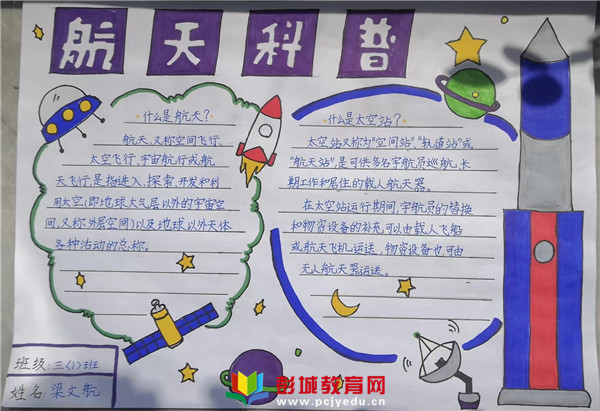 航天科普
什么是航天?
航天,又称空间飞行,
太空飞行,宇宙航行或航
天飞行,是指进入、探索、开发和利
用太空(即地球大气层以外的宇宙空
间,又称外层空间)以及地球以外天体
各种活动的总称。
什么是太空站?
太空站又称为“空间站”、“轨道站”或
“航天站”,是可供多名宇航员巡航、长
期工作和居住的载人航天器。
在太空站运行期间,宇航员的替换
和物资设备的补充可以由载人飞船
或航天飞机运送,物资设备也可由
无人航天器运送。
班级:三(1)班
姓名:梁文航
彭城教育网
www.pcjyedu.cn